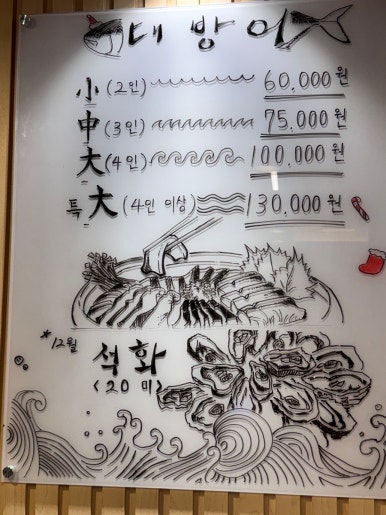 대방어
小 (2인) 60,000원
中 (3인) 75,000원
大 (4인) 100,000원
특大 (4인 이상) 130,000원
*12월 석화
(20미)